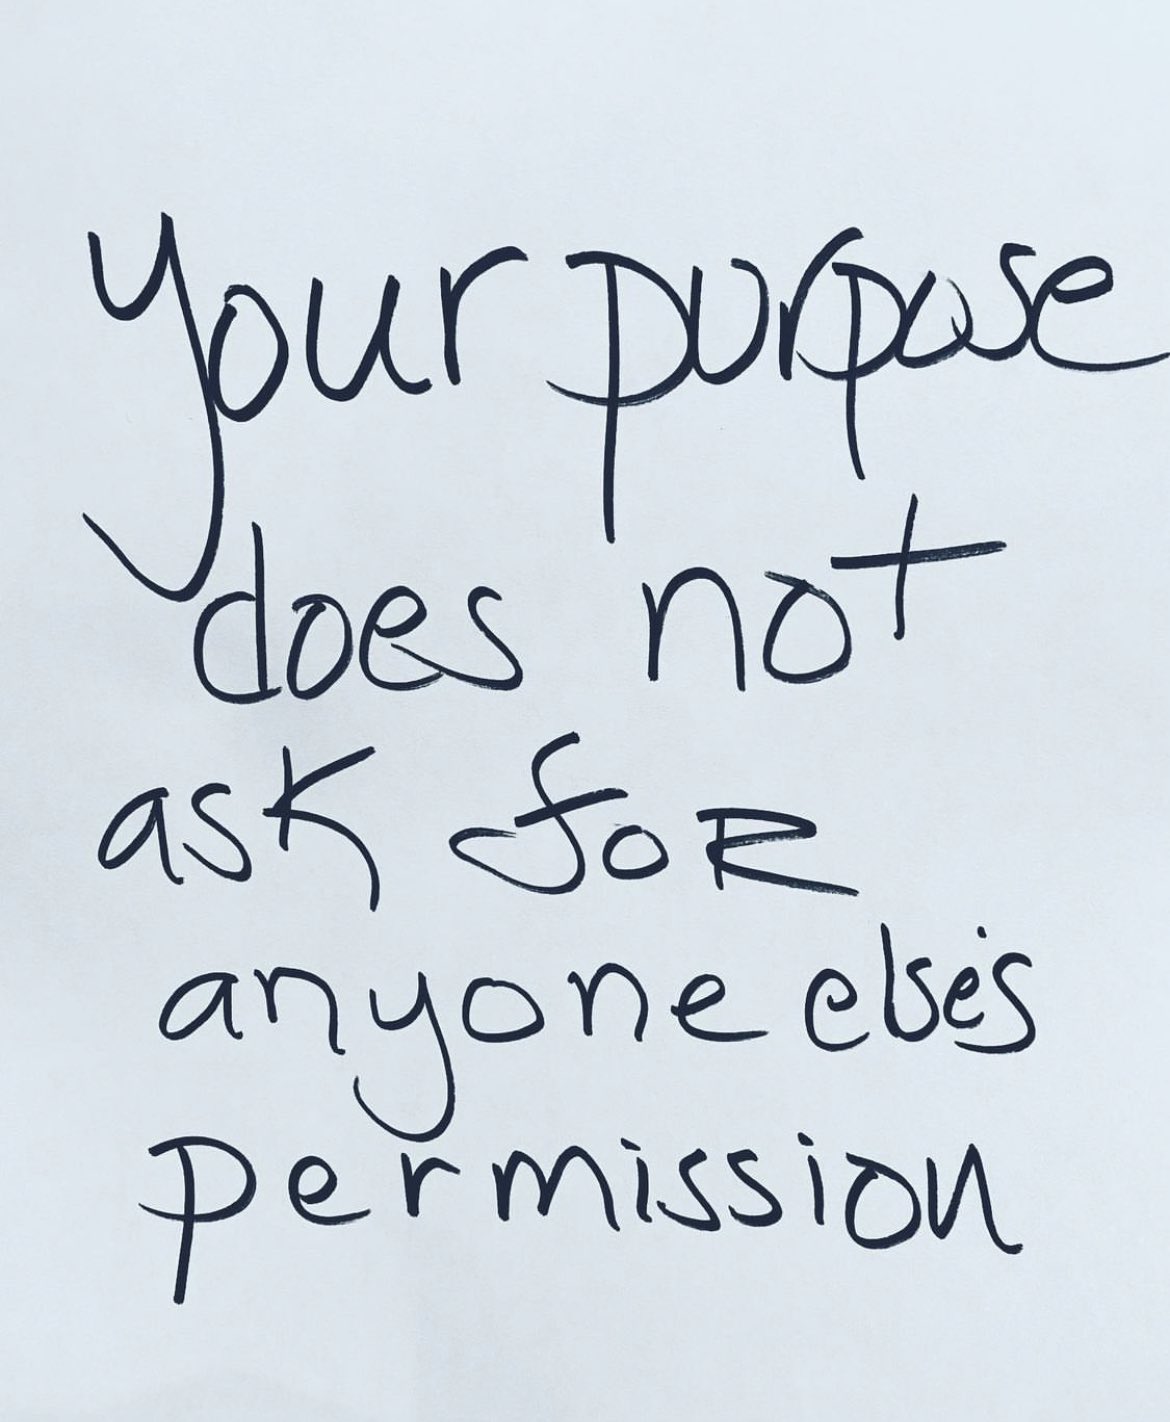 your purpose
does not
ask foR
anyone else's
permission